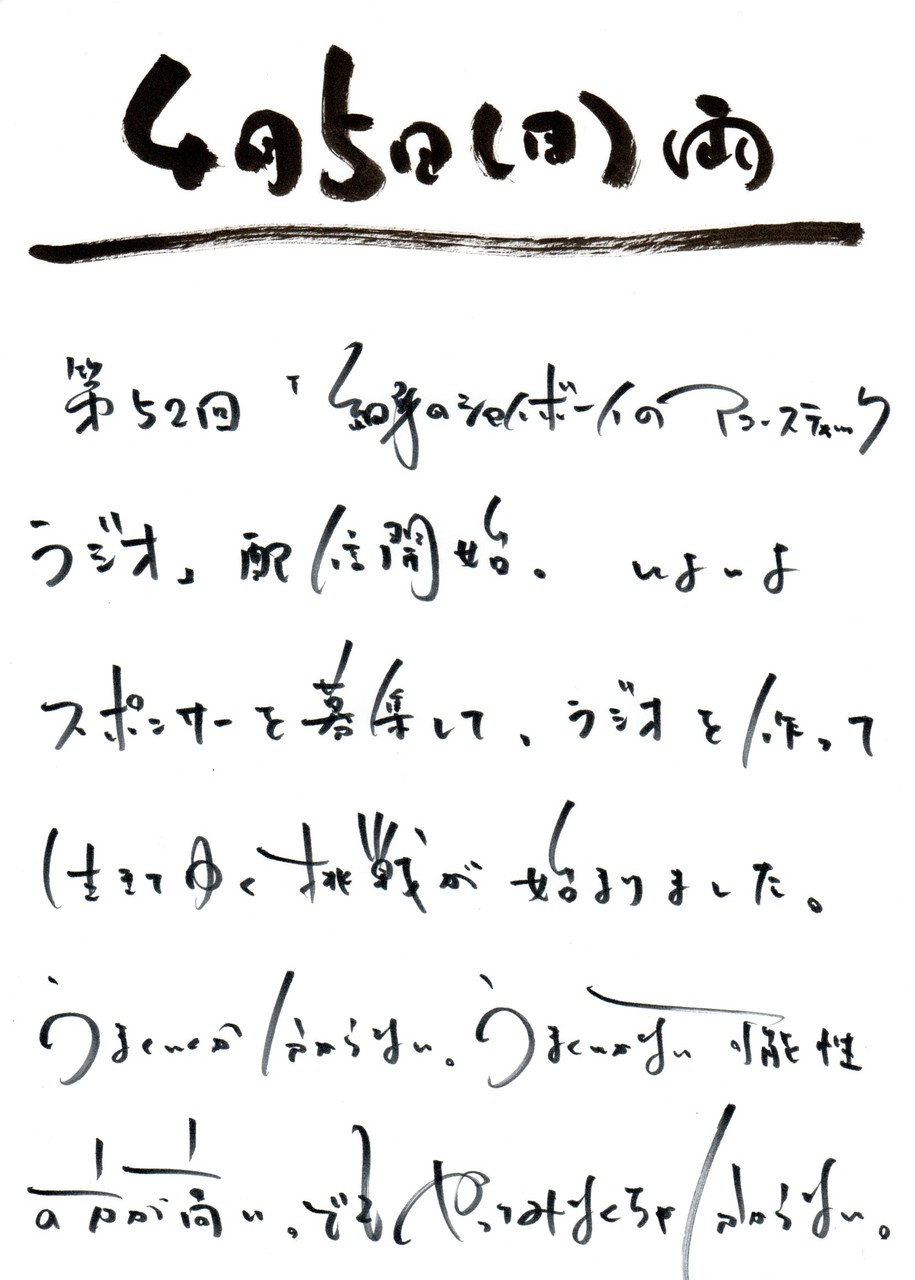 4月5日(日)雨
第52回 「細身のシャイボーイのアコースティック
ラジオ」配信開始。 いよいよ
スポンサーを募集して、ラジオを作って
生きてゆく挑戦が始まりました。
うまくいくか分からない。うまくいかない可能性
の方が高い。でもやってみなくちゃ分からない。